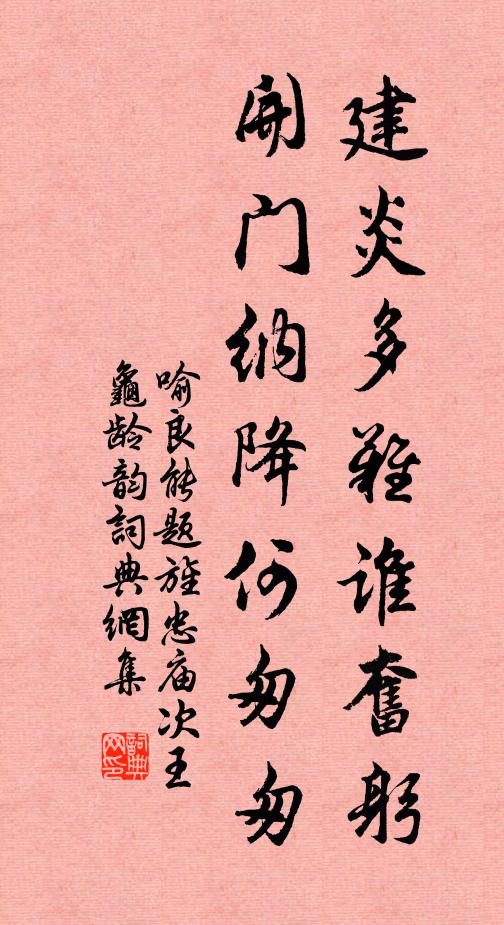 建炎多難谁奮躬
開门纳降何匆匆
喻良能题旌忠庙次王
龜龄韵詞典網集
詞典
网印